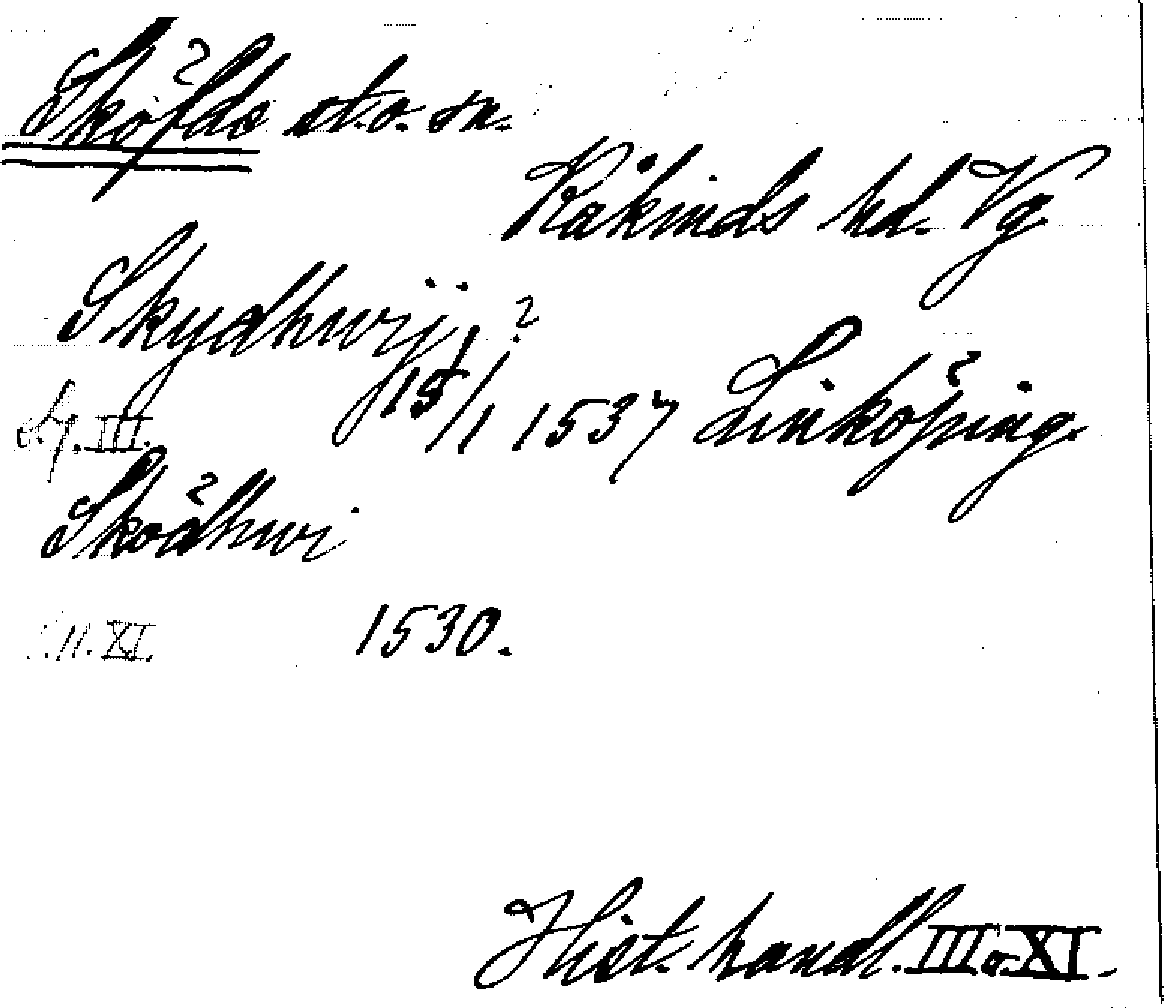 Sköfde st. o. sn.
Kåkinds hd. Vg
Skydhwij,
15/1 1537 Linköping.
III.
Sködhwi
11. XI. 1530.
Hist. handl. III o. XI.